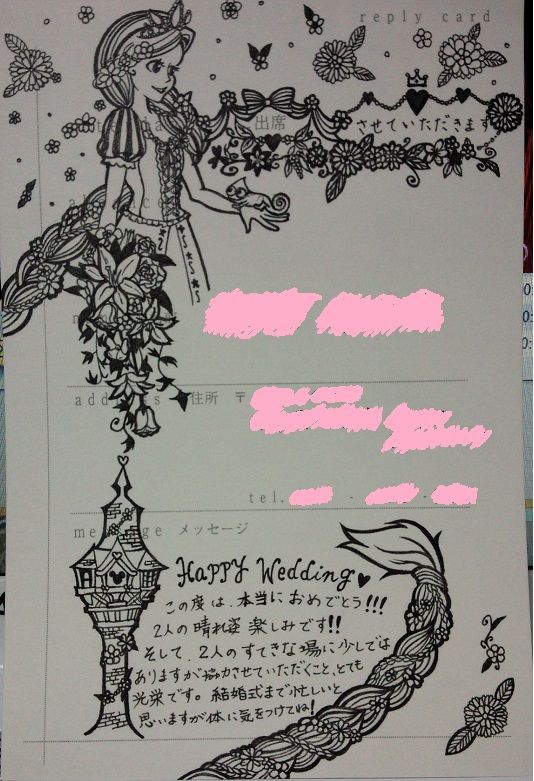 reply card
出席
させていただきます
address 住所 〒
tel. - -
message メッセージ
HAPPY Wedding
この度は、本当におめでとう!!!
2人の晴れ姿 楽しみです!!
そして、2人のすてきな場に少しでは
ありますが協力させていただくこと、とても
光栄です。結婚式まで忙しいと
思いますが体に気をつけてね!